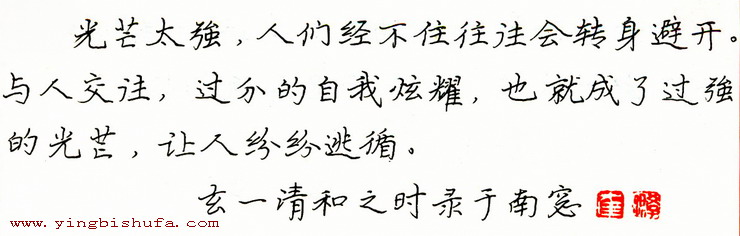 光芒太強，人们经不住往往会转身避开。
与人交往，过分的自我炫耀，也就成了过強
的光芒，让人纷纷逃循。
玄一清和之时录于南窓
www.yingbishufa.com